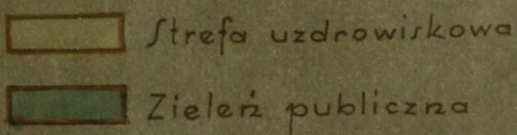 Strefa uzdrowiskowa
Zieleń publiczna